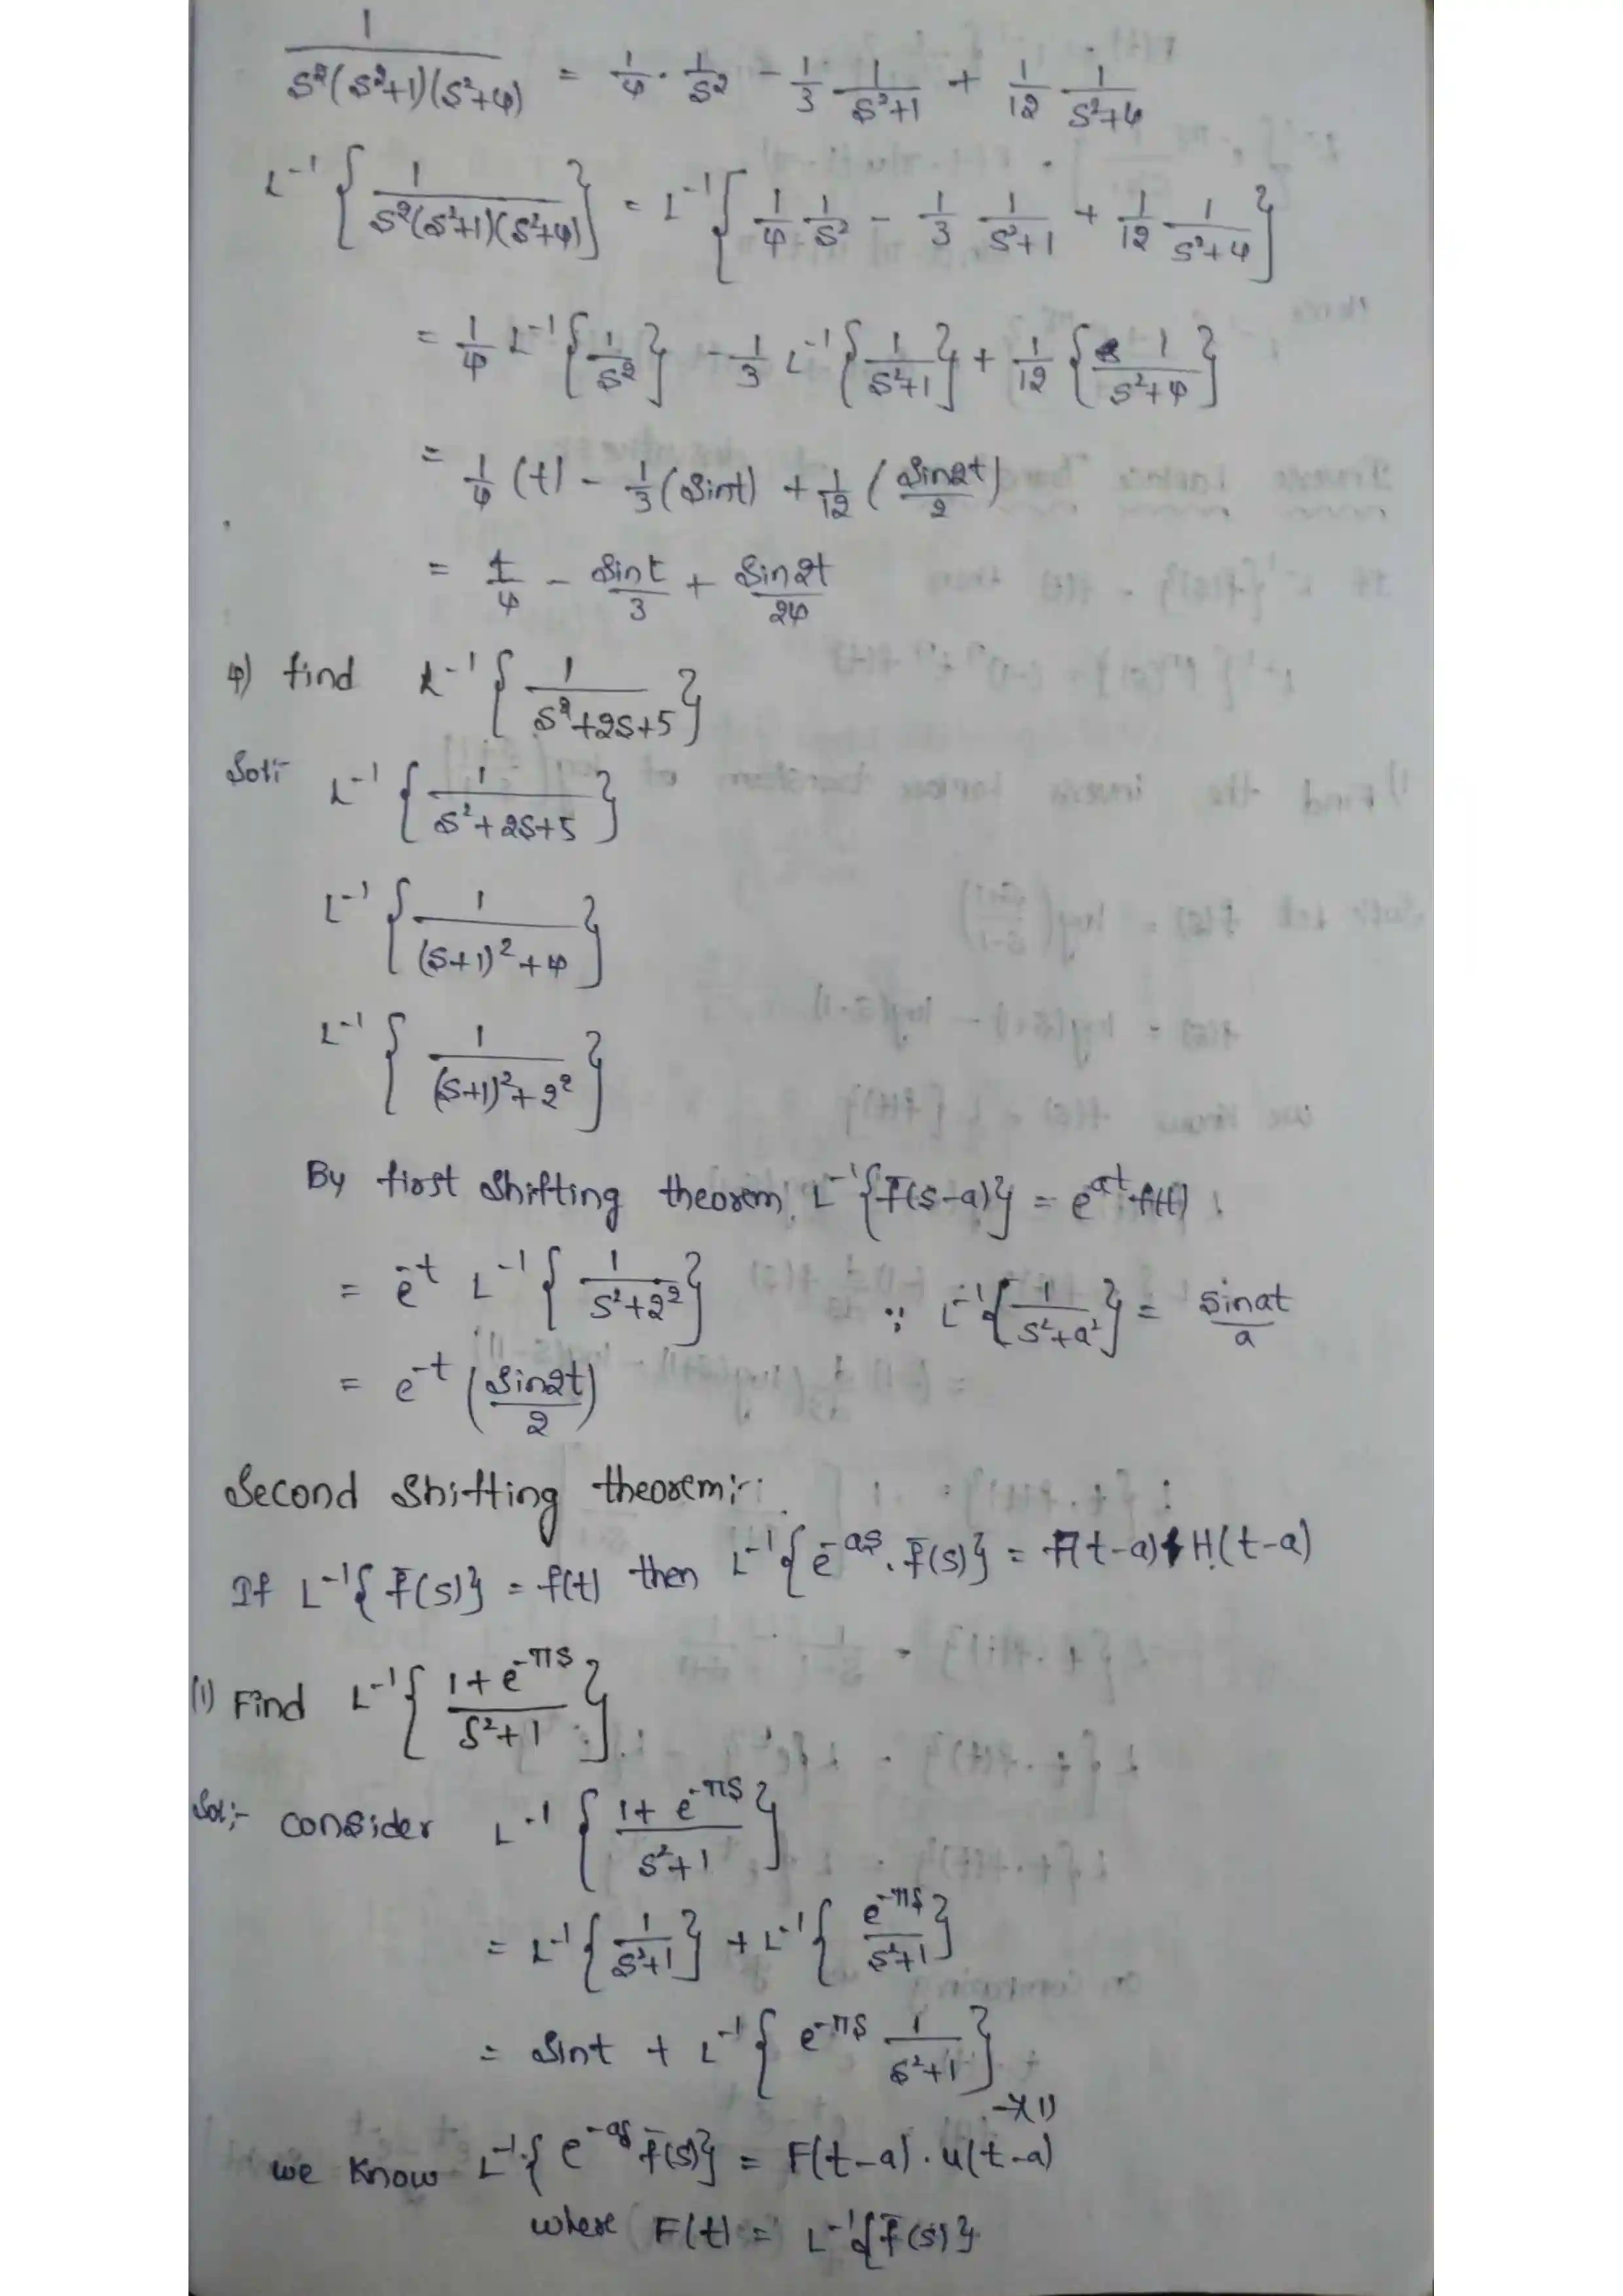 1/(s²(s²+1)(s²+4)) = 1/4 · 1/s² - 1/3 1/(s²+1) + 1/12 1/(s²+4)
L⁻¹{1/(s²(s²+1)(s²+4))} = L⁻¹{1/4 1/s² - 1/3 1/(s²+1) + 1/12 1/(s²+4)}
= 1/4 L⁻¹{1/s²} - 1/3 L⁻¹{1/(s²+1)} + 1/12 {1/(s²+4)}
= 1/4 (t) - 1/3 (sint) + 1/12 (sin2t/2)
= t/4 - sint/3 + sin2t/24
4) find L⁻¹{1/(s²+2s+5)}
Sol:- L⁻¹{1/(s²+2s+5)}
L⁻¹{1/((s+1)²+4)}
L⁻¹{1/((s+1)²+2²)}
By first shifting theorem, L⁻¹{f̄(s-a)} = e^{at} f(t).
= e^{-t} L⁻¹{1/(s²+2²)} ∵ L⁻¹{1/(s²+a²)} = sinat/a
= e^{-t} (sin2t/2)
Second shifting theorem:-
If L⁻¹{f̄(s)} = f(t) then L⁻¹{e^{-as}. f̄(s)} = F(t-a) H(t-a)
(1) Find L⁻¹{(1+e^{-πs})/(s²+1)}
Sol:- consider L⁻¹{(1+e^{-πs})/(s²+1)}
= L⁻¹{1/(s²+1)} + L⁻¹{e^{-πs}/(s²+1)}
= sint + L⁻¹{e^{-πs} 1/(s²+1)} →(1)
we know L⁻¹{e^{-as} f̄(s)} = F(t-a) . u(t-a)
where F(t) = L⁻¹{f̄(s)}